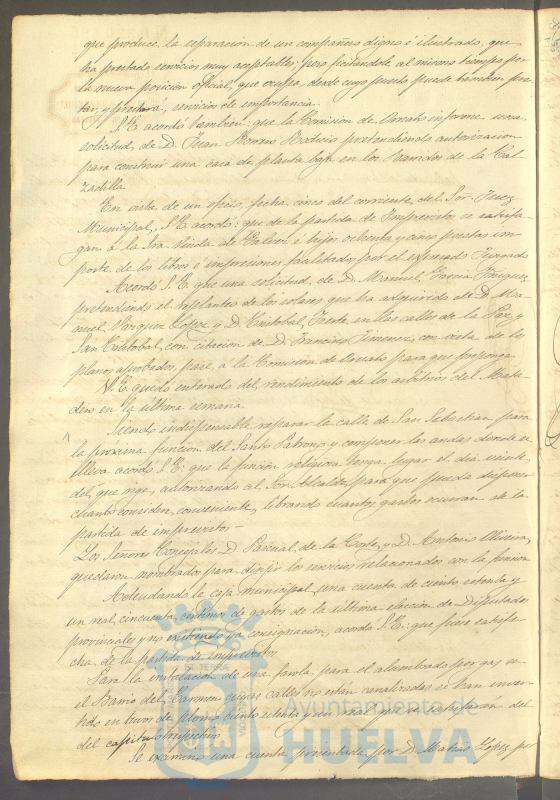 que produce la separacion de un compañero digno é ilustrado, que
ha prestado servicios muy aceptables, pero felicitandole al mismo tiempo por
la nueva posicion oficial que ocupa, desde cuyo puesto puede tambien pres
tar, y prestará, servicios de importancia.
S. E. acordó tambien: que la Comision de Ornato informe una
solicitud de D. Juan Romero pretendiendo autorizacion
para construir una casa de planta baja en los de la Cal
zadilla
En vista de un oficio, fecha cinco del corriente, del Sor. Juez
Municipal, S. E. acordó: que de la partida de Imprevistos se satisfa
gan á la Sra. Viuda de é hijos ochenta y cinco pesetas im
porte de los libros é impresiones facilitados por el espresado Juzgado
Acordó S. E. que una solicitud de D. Manuel Garcia
pretendiendo el replanteo de los solares que ha adquirido de D. Ma
nuel Lopez y D. Cristobal en las calles de la Paz y
San Cristobal, con citacion de D. Francisco Jimenez, con vista de los
planos aprobados, pase á la Comision de Ornato para que proponga
S. E. quedó enterado del rendimiento de los arbitrios del Mata
dero en la última semana
Siendo indispensable reparar la calle de San Sebastian para
la proxima funcion del Santo Patrono y componer las andas donde se
lleva acordó S. E.: que la funcion religiosa tenga lugar el dia veinte
del que rije, autorizando al Sor. Alcalde para que pueda disponer
cuanto considere conveniente, librando cuantos gastos ocurran de la
partida de imprevistos—
Los Señores Concejales D. Pascual de la Corte y D. Antonio Oliveira,
quedaron nombrados para dirijir los servicios relacionados con la funcion
Adeudando la caja municipal una cuenta de ciento setenta y
un real, cincuenta centimos de gastos de la última eleccion de Diputados
provinciales y no existiendo ya consignacion, acordó S. E.: que fuese satisfe
cha de la partida de imprevistos
Para la instalacion de una farola para el alumbrado por gas en
el Barrio del Carmen cuyas calles no están canalizadas se han inver
tido en tuvos de plomo ciento setenta y un real que se satisfaran del
del capitulo respectivo
Se examinó una cuenta presentada por D. Matias Lopez por
Ayuntamiento de
HUELVA